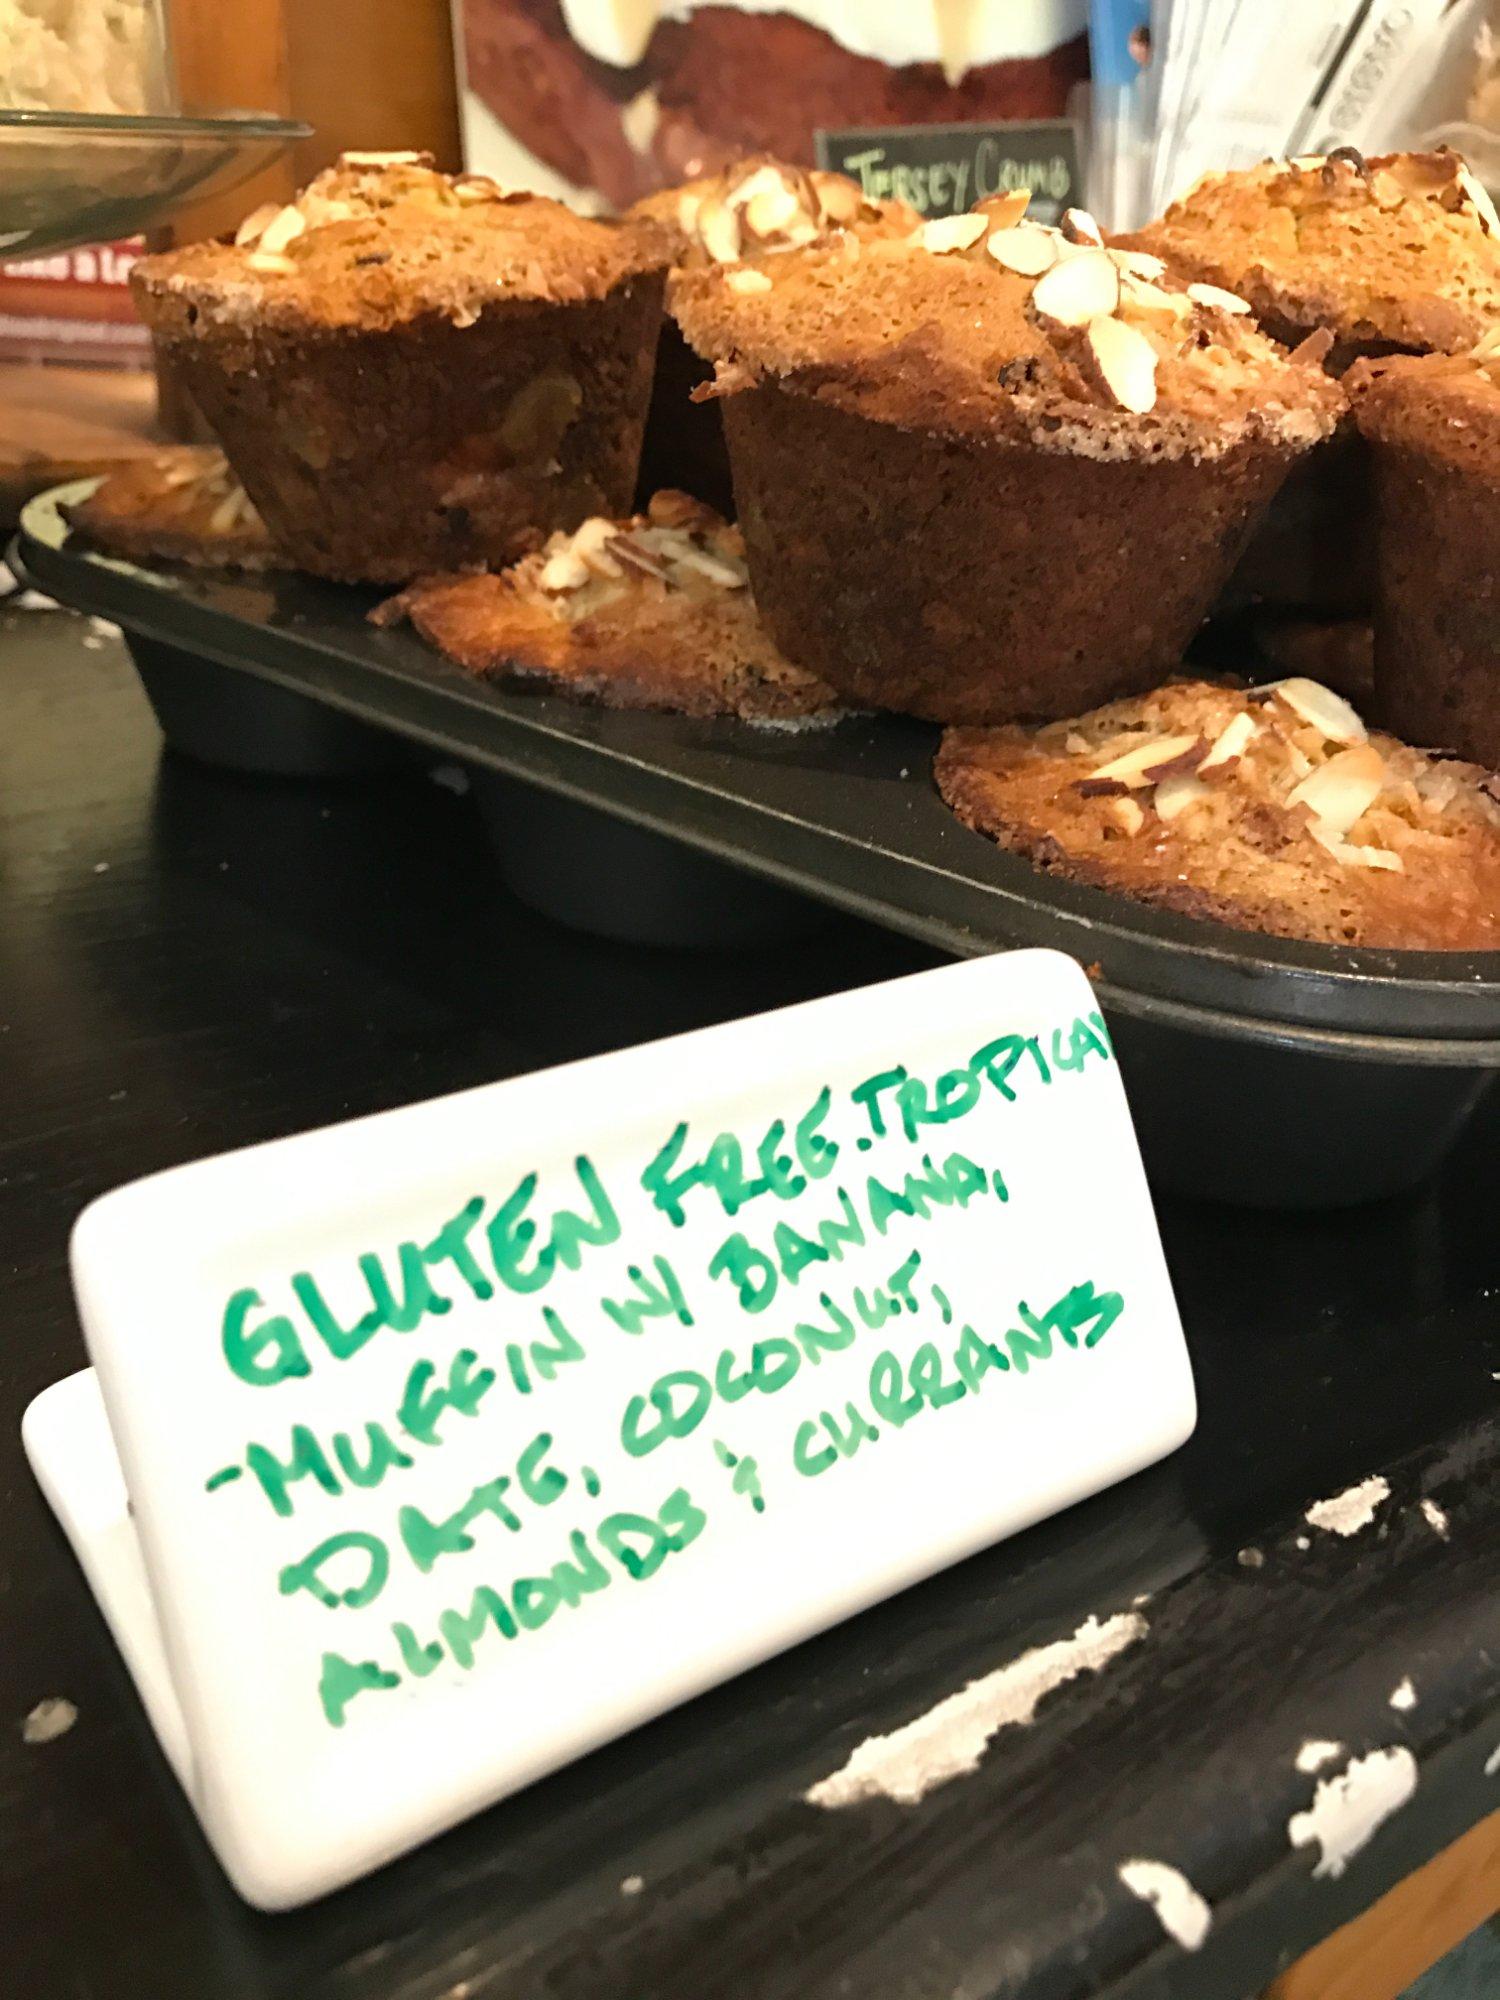 JERSEY CRUMB
GLUTEN FREE. TROPICAL
-MUFFIN W/ BANANA,
DATE, COCONUT,
ALMONDS & CURRANTS